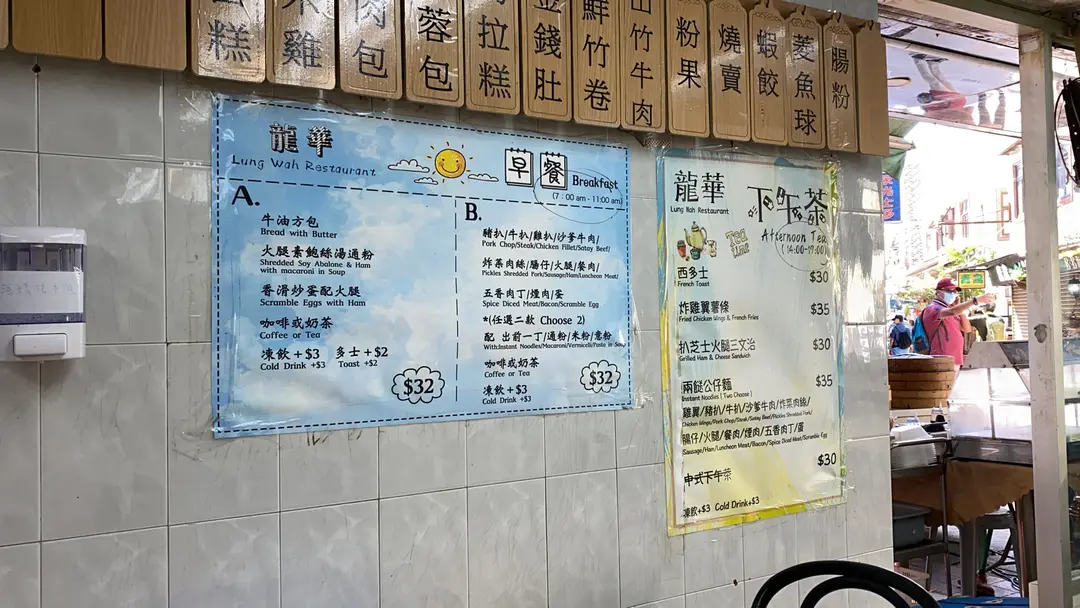 糕
雞
肉包
蓉包
拉糕
金錢肚
鮮竹卷
山竹牛肉
粉果
燒賣
蝦餃
菱魚球
腸粉
龍華
Lung Wah Restaurant
早餐 Breakfast
(7:00 am - 11:00 am)
A.
牛油方包
Bread with Butter
火腿素鮑絲湯通粉
Shredded Soy Abalone & Ham
with macaroni in Soup
香滑炒蛋配火腿
Scramble Eggs with Ham
咖啡或奶茶
Coffee or Tea
凍飲+$3 多士+$2
Cold Drink +$3 Toast +$2
$32
B.
豬扒/牛扒/雞扒/沙爹牛肉/
Pork Chop/Steak/Chicken Fillet/Satay Beef/
炸菜肉絲/腸仔/火腿/餐肉/
Pickles Shredded Pork/Sausage/Ham/Luncheon Meat/
五香肉丁/煙肉/蛋
Spice Diced Meat/Bacon/Scramble Egg
*(任選二款 Choose 2)
配 出前一丁/通粉/米粉/意粉
With:Instant Noodles/Macaroni/Vermicelli/Pasta in Soup
咖啡或奶茶
Coffee or Tea
凍飲+$3
Cold Drink +$3
$32
龍華
Lung Wah Restaurant
下午茶
Afternoon Tea
(14:00-17:00)
Tea Time
西多士 $30
French Toast
炸雞翼薯條 $35
Fried Chicken Wings & French Fries
扒芝士火腿三文治 $30
Grilled Ham & Cheese Sandwich
兩餸公仔麵 $35
Instant Noodles (Two Choose)
雞翼/豬扒/牛扒/沙爹牛肉/炸菜肉絲/
Chicken Wings/Pork Chop/Steak/Satay Beef/Pickles Shredded Pork/
腸仔/火腿/餐肉/煙肉/五香肉丁/蛋
Sausage/Ham/Luncheon Meat/Bacon/Spice Diced Meat/Scramble Egg
中式下午茶 $30
凍飲+$3 Cold Drink+$3